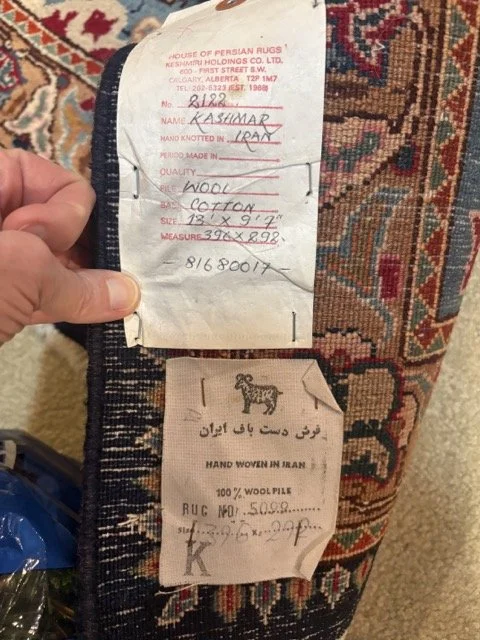 HOUSE OF PERSIAN RUGS
KESHMIRI HOLDINGS CO. LTD.
600 - FIRST STREET S.W.
CALGARY, ALBERTA T2P 1M7
TEL: 262-5323 (EST. 1968)
No. 2122
NAME KASHMAR
HAND KNOTTED IN IRAN
PERIOD MADE IN
QUALITY
PILE WOOL
COTTON
SIZE 13' X 9' 7"
MEASURE 396 X 292
- 81680017 -
فرش دست باف ایران
HAND WOVEN IN IRAN
100% WOOL PILE
RUG NO. 5088
Size
K